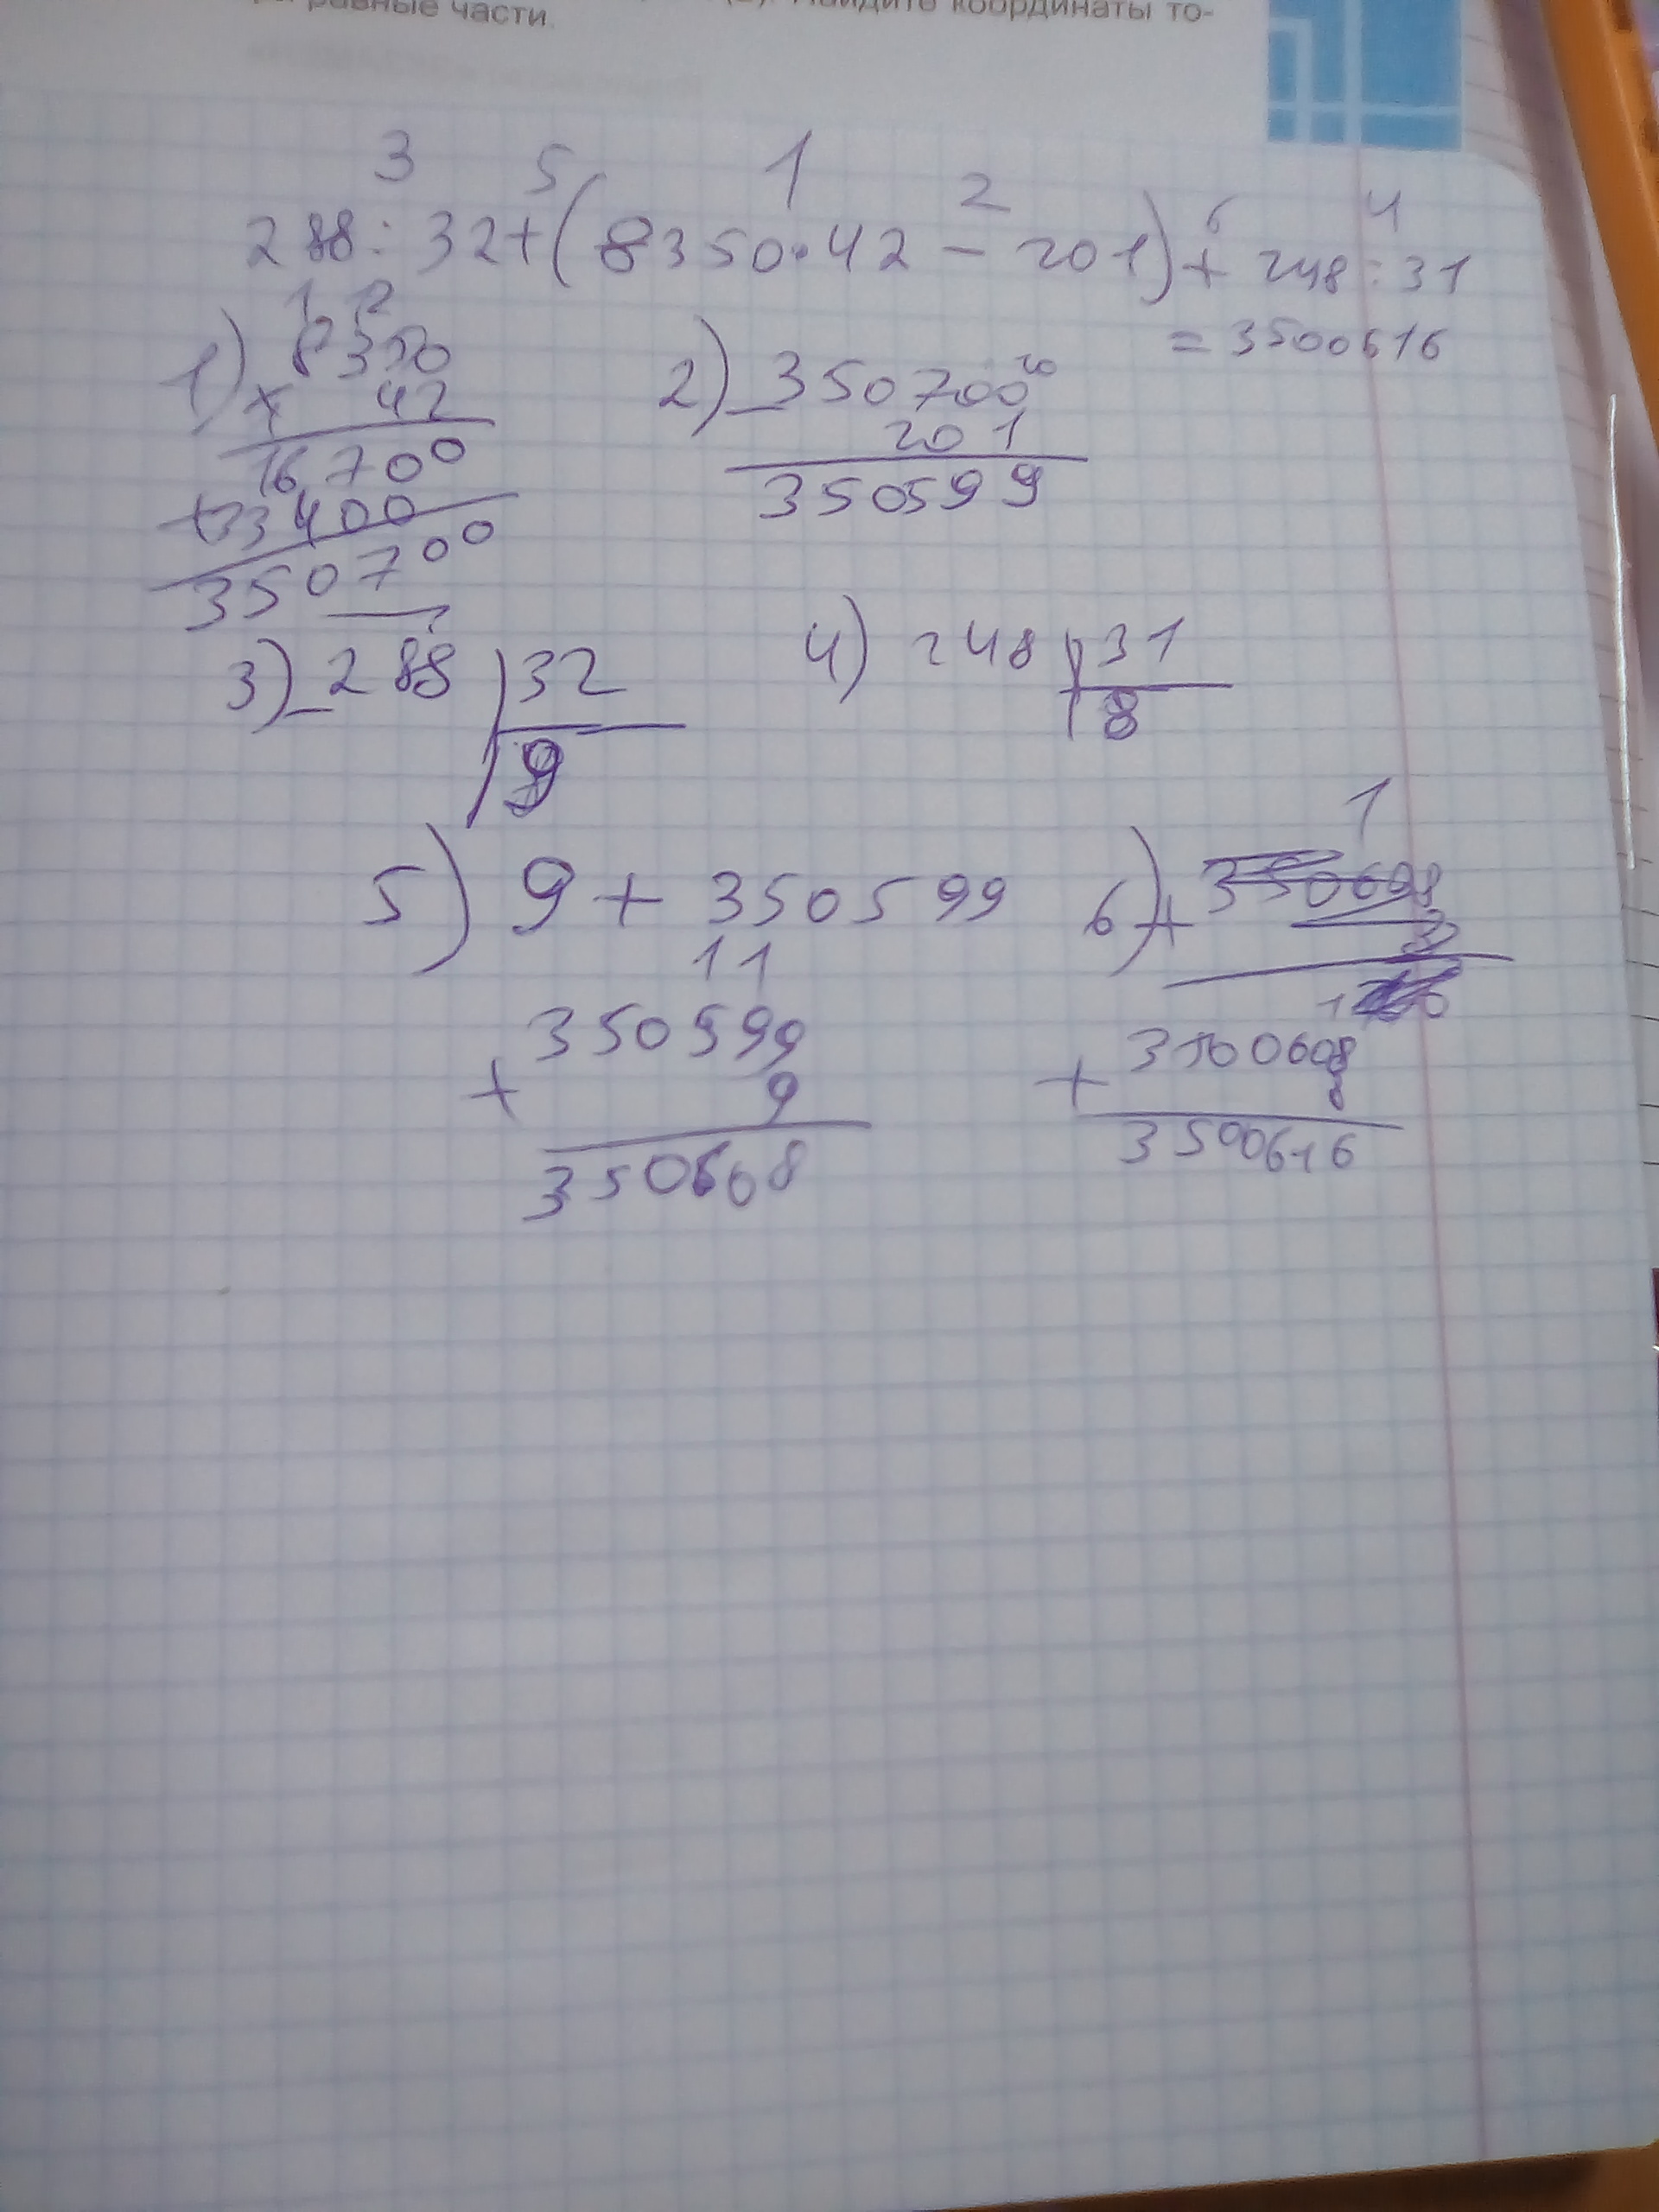 Найдите координаты то-
равные части.
3 5 1 2 6 4
288 : 32 + (8350 · 42 - 201) + 248 : 31
= 3500616
1) 8350
× 42
16700
+33400
350700
2) - 350700
201
350599
3) - 288 | 32
9
4) 248 | 31
8
5) 9 + 350599
11
350599
+ 9
350608
6) +
1
3500608
+ 8
3500616